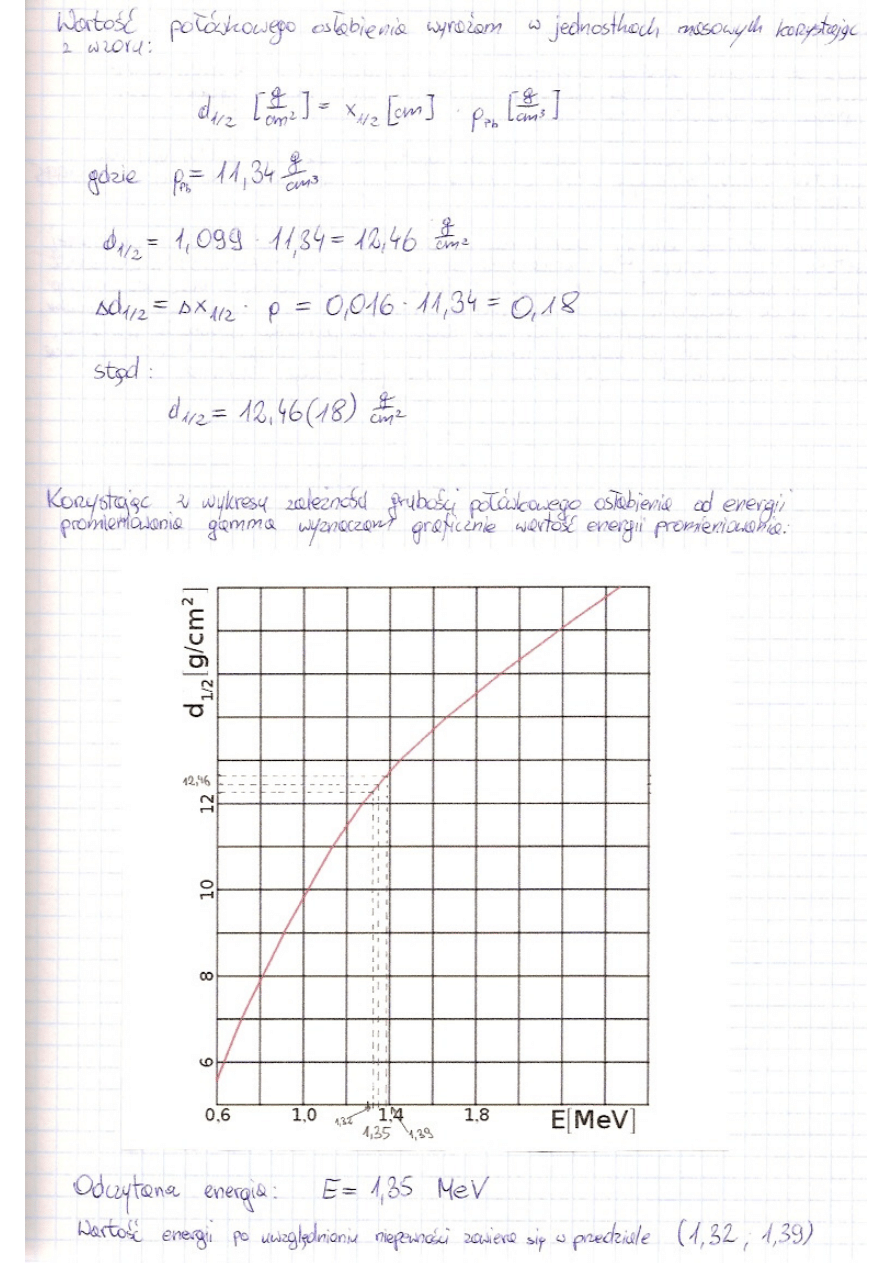 Wartość połówkowego osłabienia wyrażam w jednostkach masowych korzystając
z wzoru:
d1/2 [g/cm²] = x1/2 [cm] · ρPb [g/cm³]
gdzie ρPb = 11,34 g/cm³
d1/2 = 1,099 · 11,34 = 12,46 g/cm²
Δd1/2 = Δx1/2 · ρ = 0,016 · 11,34 = 0,18
stąd :
d1/2 = 12,46(18) g/cm²
Korzystając z wykresu zależności grubości połówkowego osłabienia od energii
promieniowania gamma wyznaczam graficznie wartość energii promieniowania:
d1/2 [g/cm²]
12,46
12
10
8
6
0,6 1,0 1,32 1,4 1,8 E[MeV]
1,35 1,39
Odczytana energia: E = 1,35 MeV
Wartość energii po uwzględnieniu niepewności zawiera się w przedziale (1,32 ; 1,39)